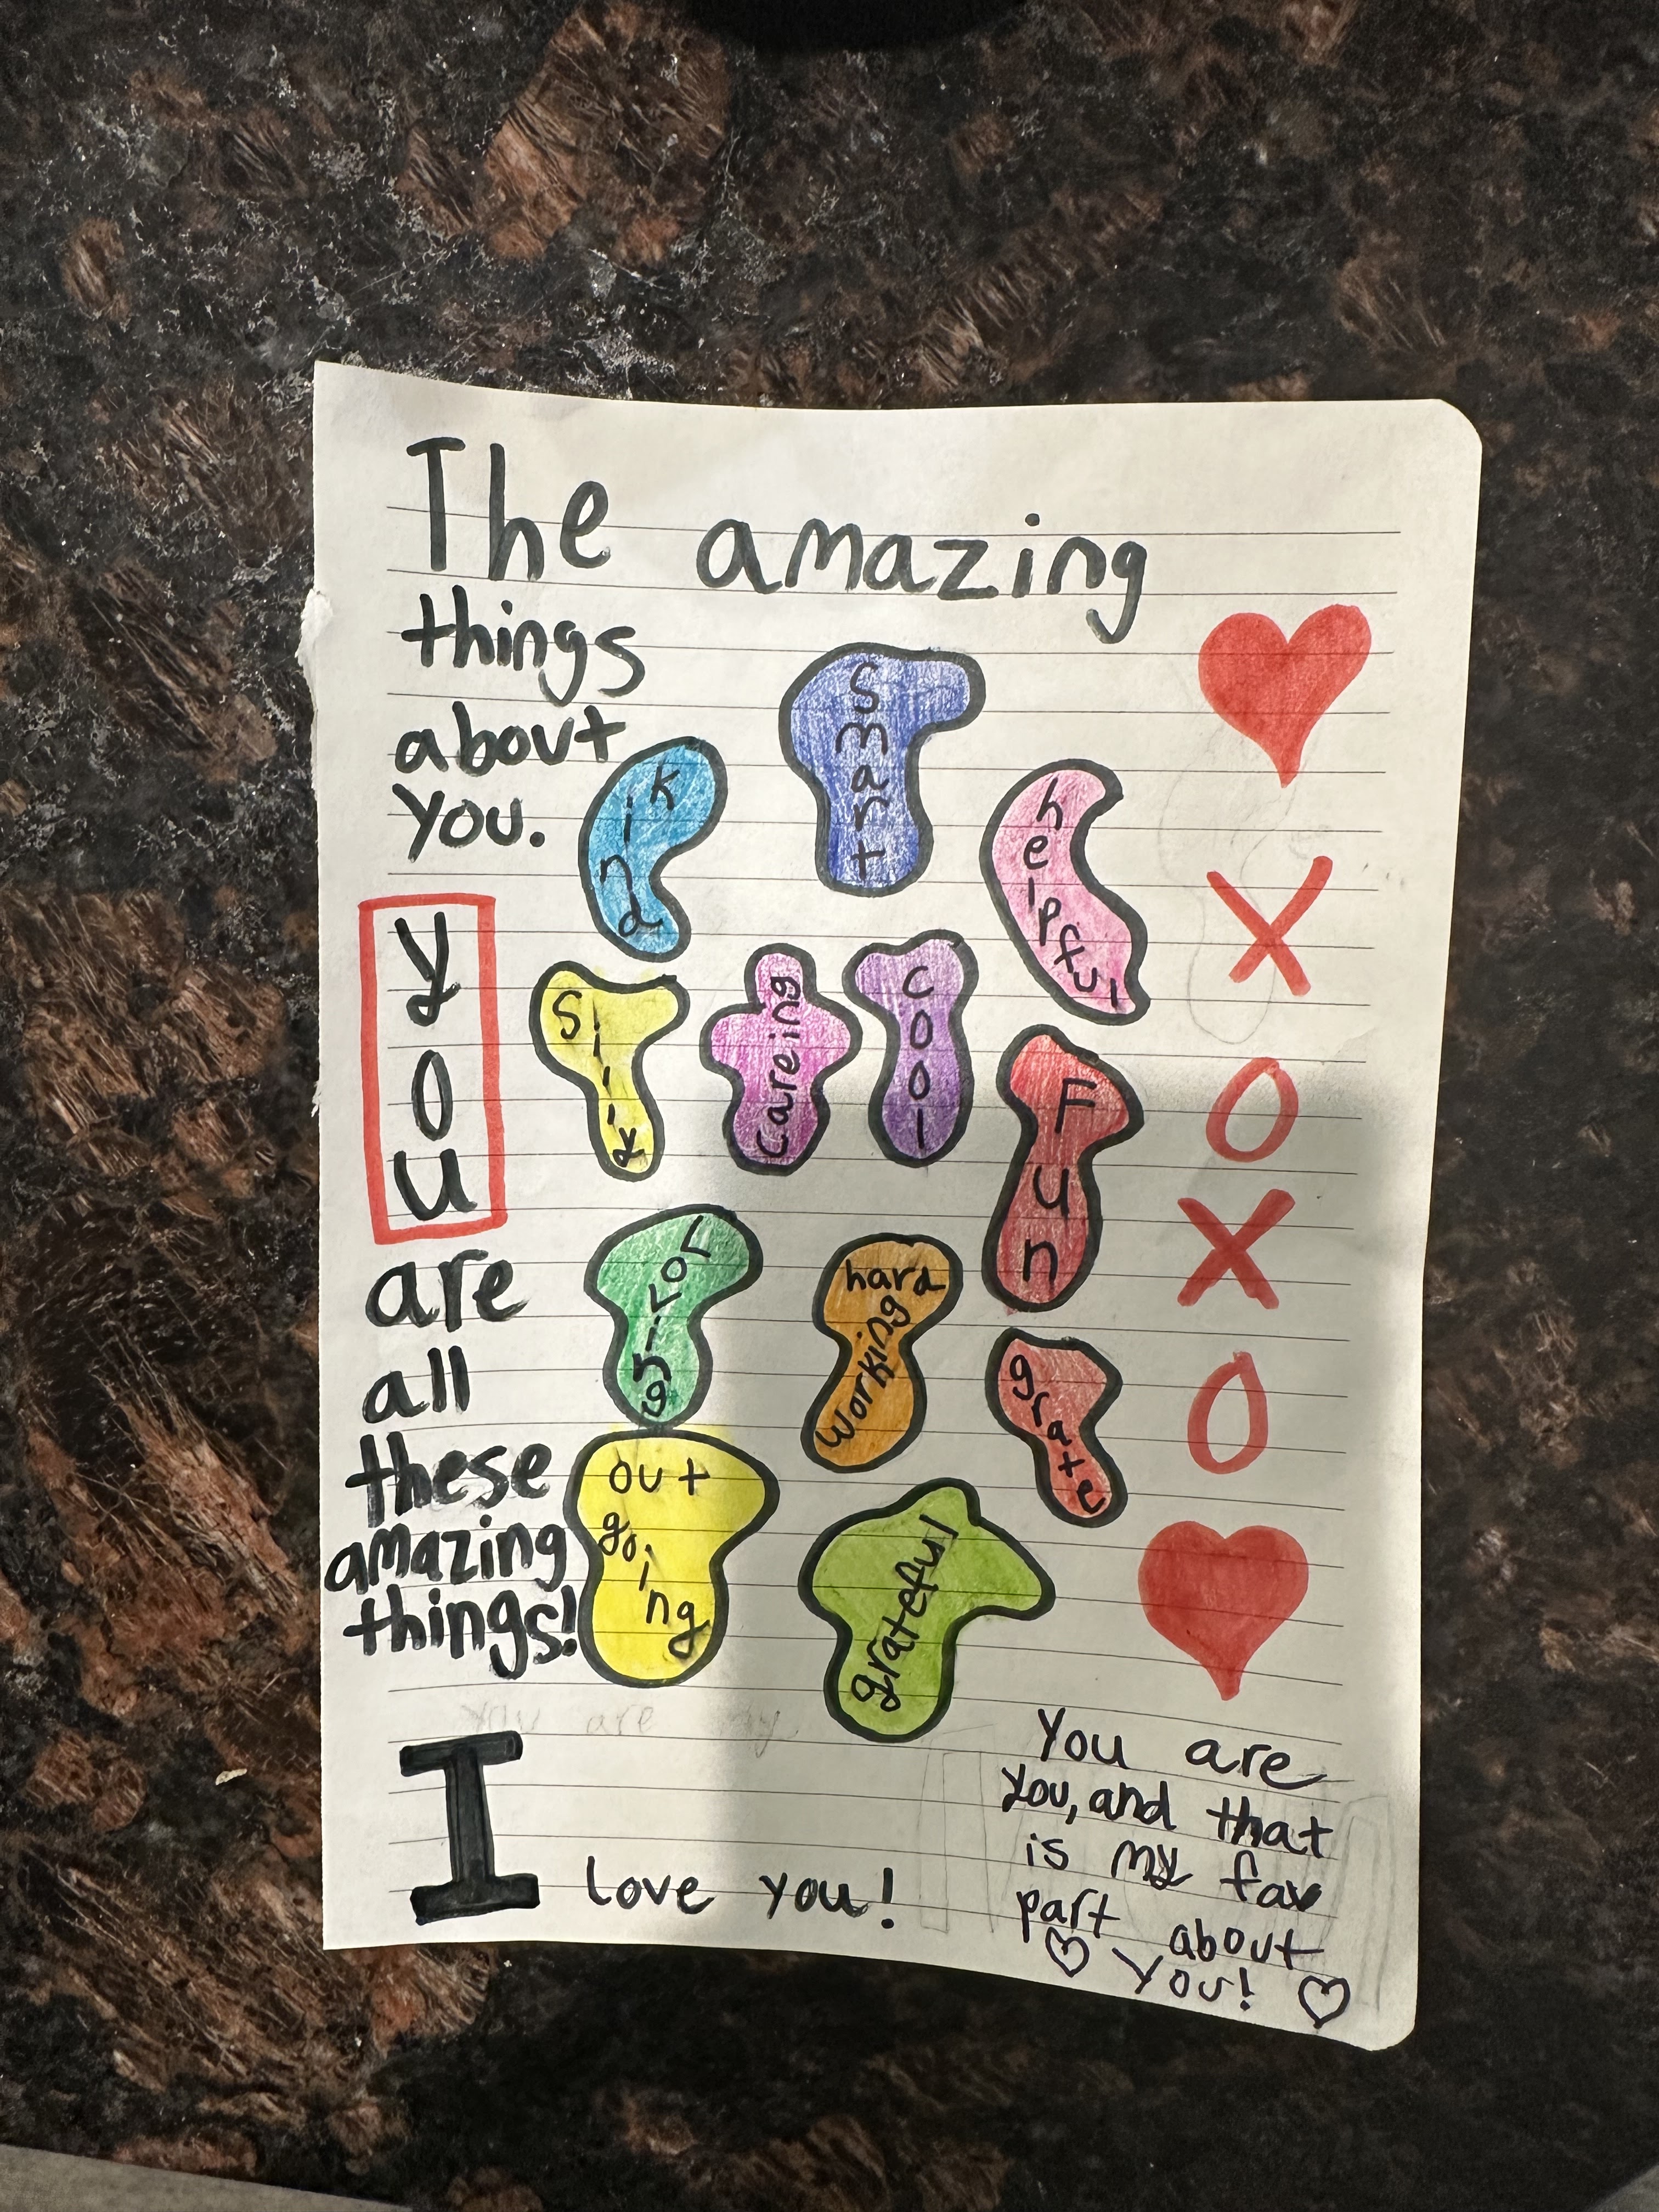 The amazing
things
about
you.
Smart
kind
helpful
Silly
Careing
Cool
Fun
you
are
all
these
amazing
things!
Loving
hard
working
grate
out
going
grateful
X
O
X
O
You are my
I love you!
You are
you, and that
is my fav
part about
you!